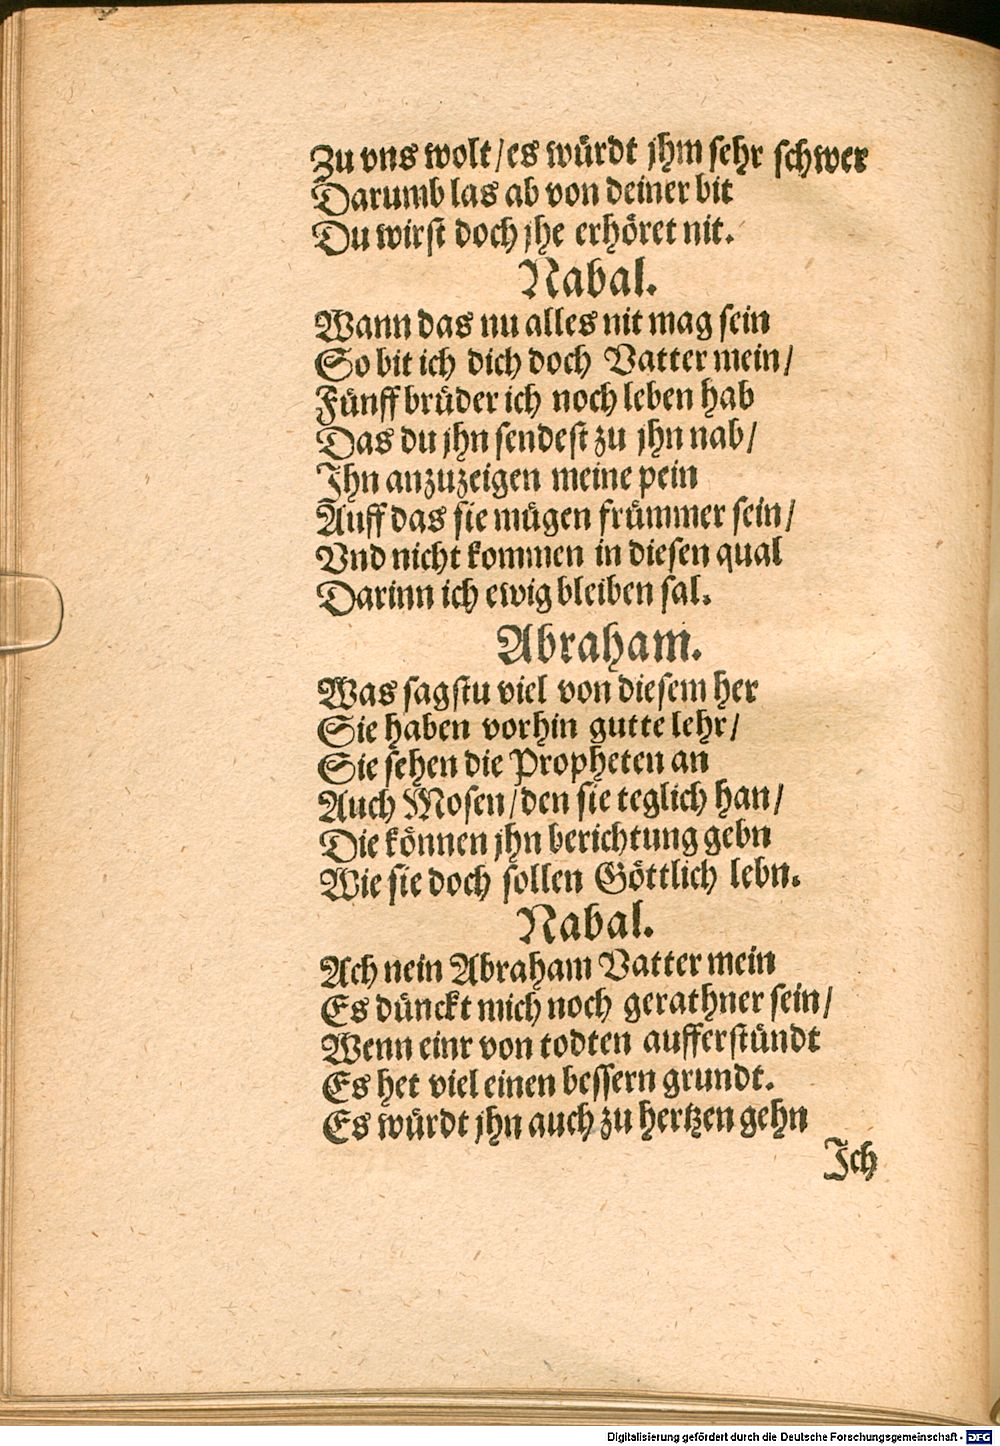 Zu vns wolt/es würdt jhm sehr schwer
Darumb las ab von deiner bit
Du wirst doch jhe erhöret nit.
Nabal.
Wann das nu alles nit mag sein
So bit ich dich doch Vatter mein/
Fünff brüder ich noch leben hab
Das du jhn sendest zu jhn nab/
Ihn anzuzeigen meine pein
Auff das sie mügen frümmer sein/
Vnd nicht kommen in diesen qual
Darinn ich ewig bleiben sal.
Abraham.
Was sagstu viel von diesem her
Sie haben vorhin gutte lehr/
Sie sehen die Propheten an
Auch Mosen/den sie teglich han/
Die können jhn berichtung gebn
Wie sie doch sollen Göttlich lebn.
Nabal.
Ach nein Abraham Vatter mein
Es dünckt mich noch gerathner sein/
Wenn einr von todten aufferstündt
Es het viel einen bessern grundt.
Es würdt jhn auch zu hertzen gehn
Ich
Digitalisierung gefördert durch die Deutsche Forschungsgemeinschaft - DFG